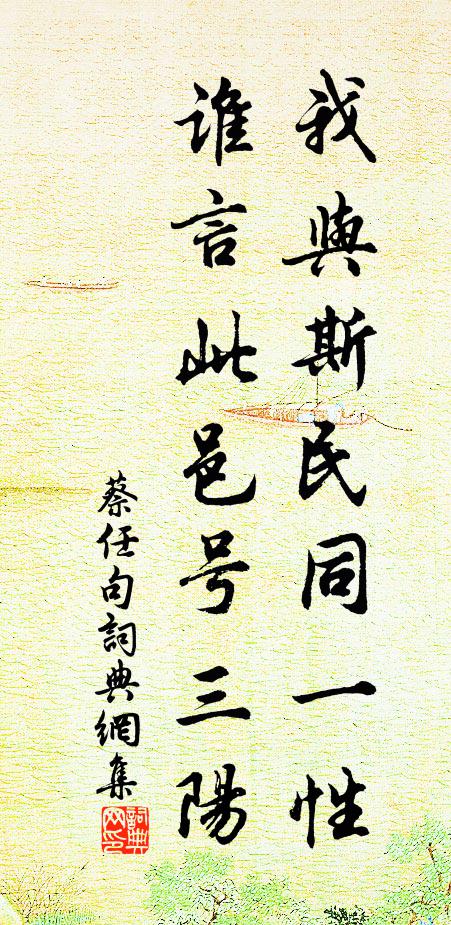 我與斯民同一性
誰言此邑号三陽
蔡任句詞典網集
詞典网印